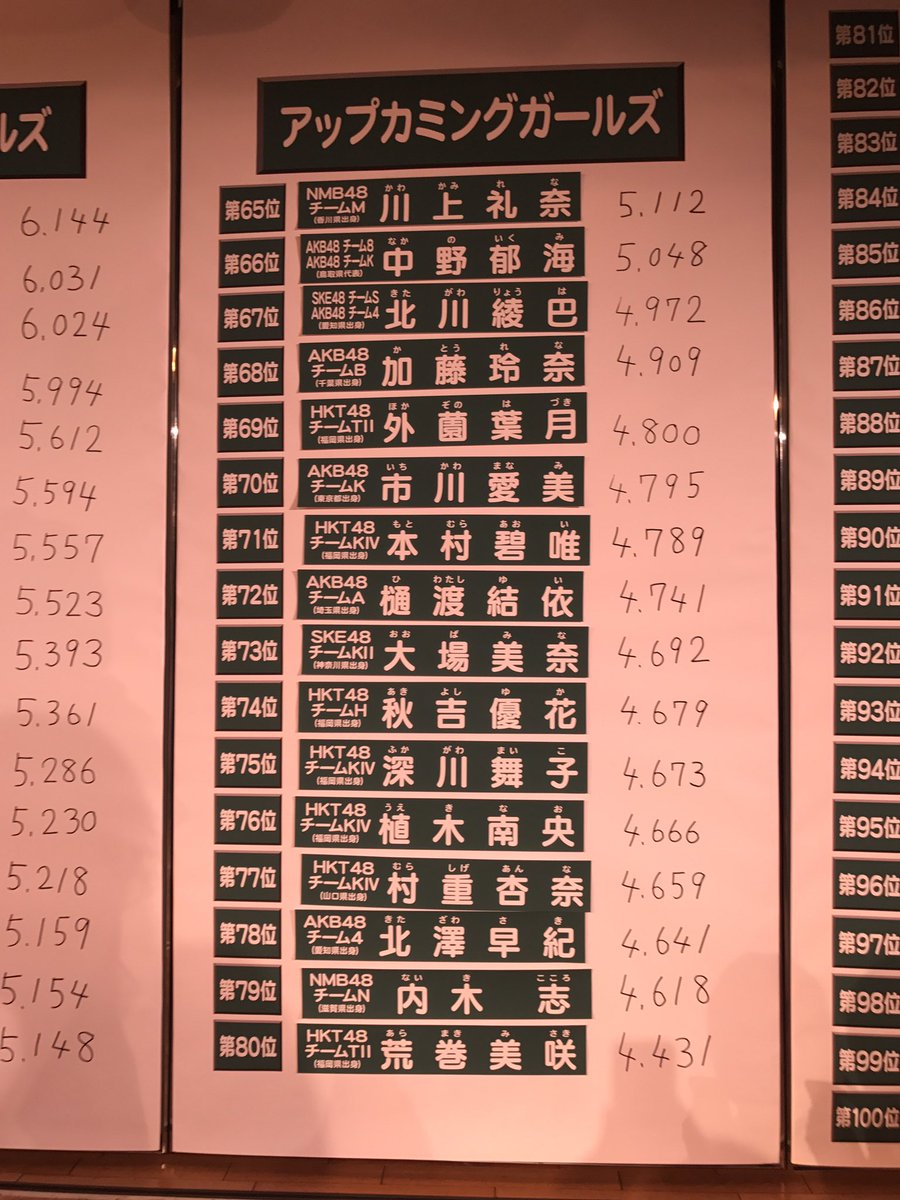 ルズ
6.144
6,031
6,024
5,994
5,612
5,594
5,557
5,523
5,393
5,361
5,286
5,230
5,218
5.159
5,154
5.148
アップカミングガールズ
第65位 NMB48 チームM (香川県出身) 川上礼奈 かわ かみ れ な 5,112
第66位 AKB48 チーム8 AKB48 チームK (鳥取県代表) 中野郁海 なか の いく み 5,048
第67位 SKE48 チームS AKB48 チーム4 (愛知県出身) 北川綾巴 きた がわ りょう は 4,972
第68位 AKB48 チームB (千葉県出身) 加藤玲奈 か とう れ な 4,909
第69位 HKT48 チームTII (福岡県出身) 外薗葉月 ほか ぞの は づき 4,800
第70位 AKB48 チームK (東京都出身) 市川愛美 いち かわ まな み 4,795
第71位 HKT48 チームKIV (福岡県出身) 本村碧唯 もと むら あお い 4,789
第72位 AKB48 チームA (埼玉県出身) 樋渡結依 ひ わたし ゆ い 4,741
第73位 SKE48 チームKII (神奈川県出身) 大場美奈 おお ば み な 4,692
第74位 HKT48 チームH (福岡県出身) 秋吉優花 あき よし ゆ か 4.679
第75位 HKT48 チームKIV (福岡県出身) 深川舞子 ふか がわ まい こ 4.673
第76位 HKT48 チームKIV (福岡県出身) 植木南央 うえ き な お 4.666
第77位 HKT48 チームKIV (山口県出身) 村重杏奈 むら しげ あん な 4.659
第78位 AKB48 チーム4 (愛知県出身) 北澤早紀 きた ざわ さ き 4.641
第79位 NMB48 チームN (滋賀県出身) 内木志 ない き こころ 4.618
第80位 HKT48 チームTII (福岡県出身) 荒巻美咲 あら まき み さき 4.431
第81位
第82位
第83位
第84位
第85位
第86位
第87位
第88位
第89位
第90位
第91位
第92位
第93位
第94位
第95位
第96位
第97位
第98位
第99位
第100位